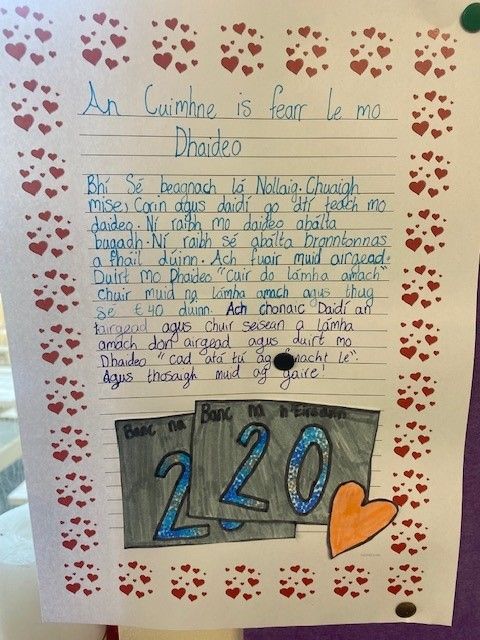 An Cuimhne is fearr le mo
Dhaideo
Bhí Sé beagnach lá Nollaig. Chuaigh
mise, Corin agus daidí go dtí teach mo
daideo. Ní raibh mo daideo abálta
bugadh. Ní raibh sé abálta branntonnas
a fháil dúinn. Ach fuair muid airgead.
Duirt mo Dhaideo "Cuir do lámha amach"
chuir muid na lámha amach agus thug
se €40 dúinn. Ach chonaic Daidí an
tairgead agus chuir seisean a lámha
amach don airgead agus duirt mo
Dhaideo "cad atá tú ag le".
Agus thosaigh muid ag gaire!
Banc na
Banc na h'Eireann
2
20